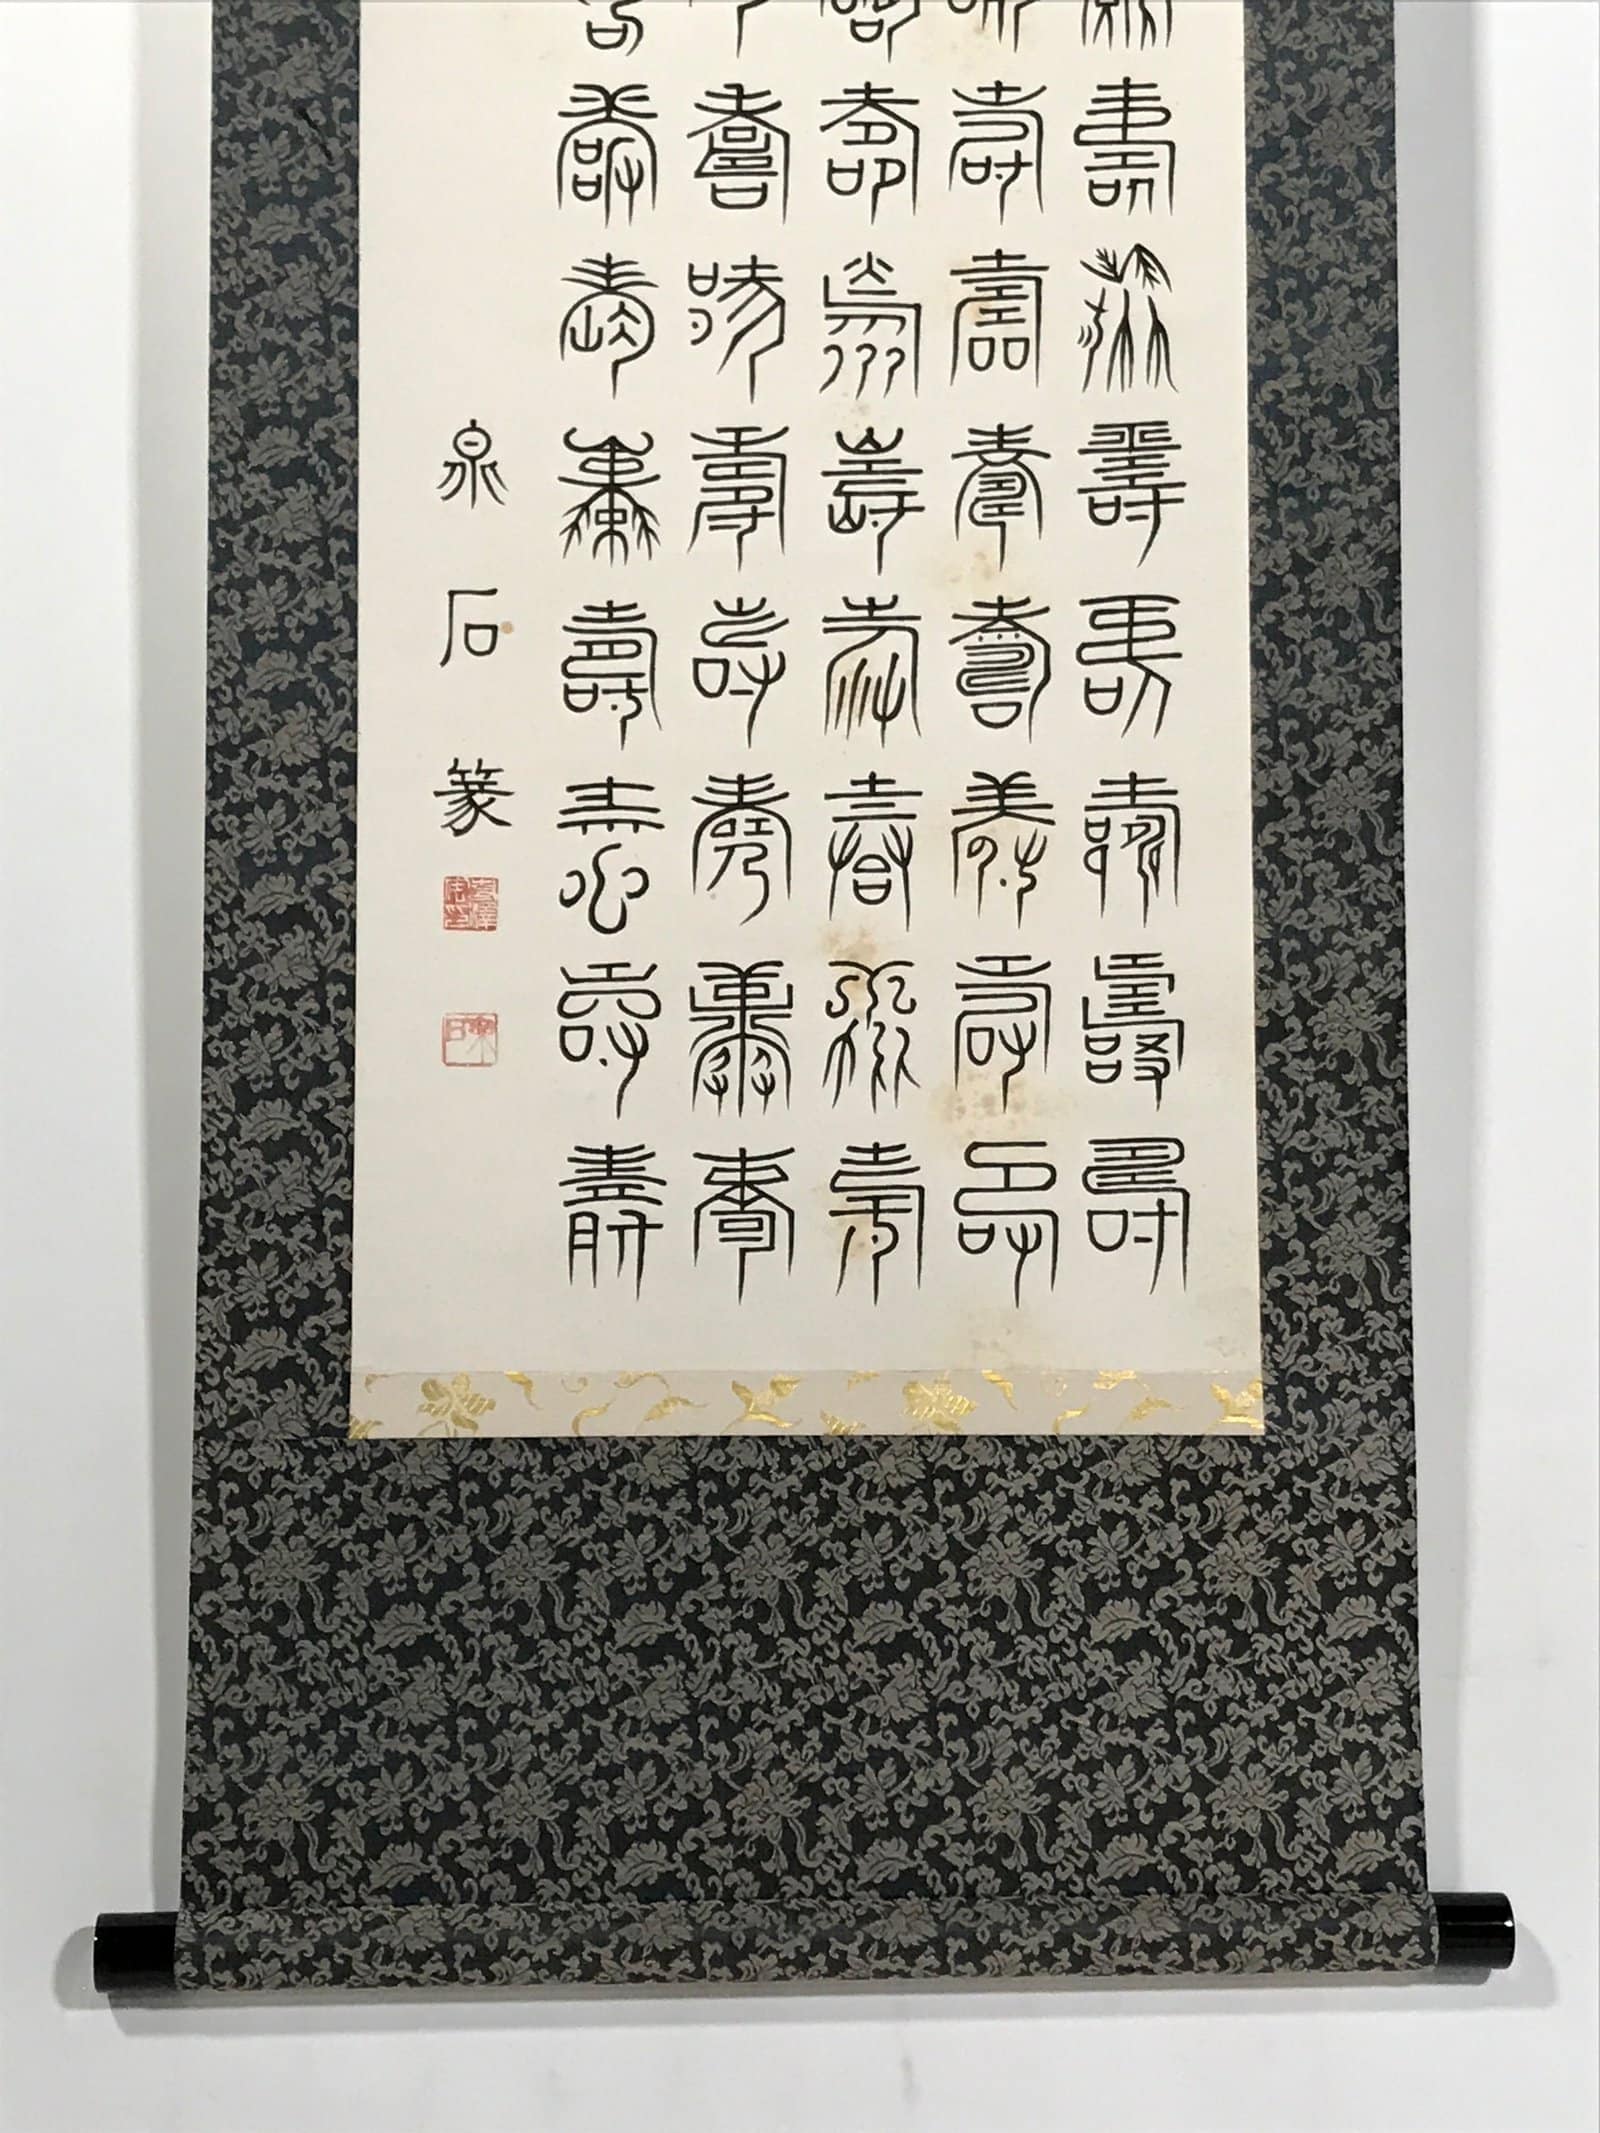 壽壽壽壽壽壽壽壽
壽壽壽壽壽壽壽壽
壽壽壽壽壽壽壽壽
壽壽壽壽壽壽壽壽
壽壽壽壽壽壽壽壽
泉石篆